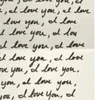 love you, I love
I love you, I love
love you, I love
you, I love you,
I love you, I love
I love you, I love
love you, I love
love you, I love
I love you,
I love you, I
love you, I love